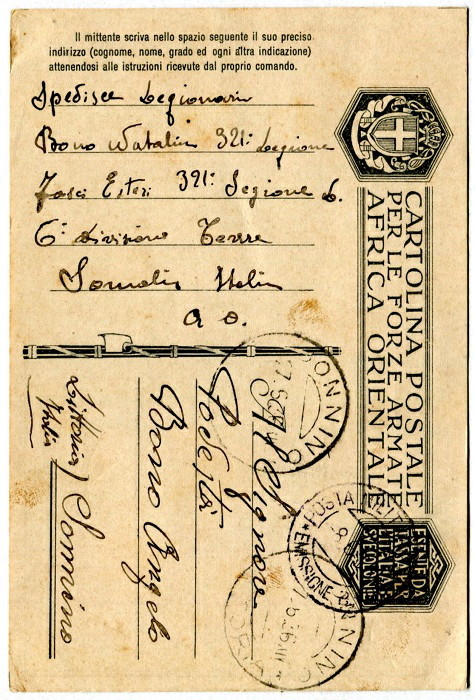 Il mittente scriva nello spazio seguente il suo preciso
indirizzo (cognome, nome, grado ed ogni altra indicazione)
attenendosi alle istruzioni ricevute dal proprio comando.
Spedisce Legionario
Bono Natalin 321ª Legione
Fasci Esteri 321ª Legione
6ª divisione Tevere
Somalia Italia
a o.
CARTOLINA POSTALE
PER LE FORZE ARMATE
AFRICA ORIENTALE
ESENTE DA
TASSA PER
L'ITALIA E
SUE COLONIE
Al Signore
Podestà
Bono Angelo
Sonnino
Littoria
Italia
SONNINO
POSTA
EMISSIONE